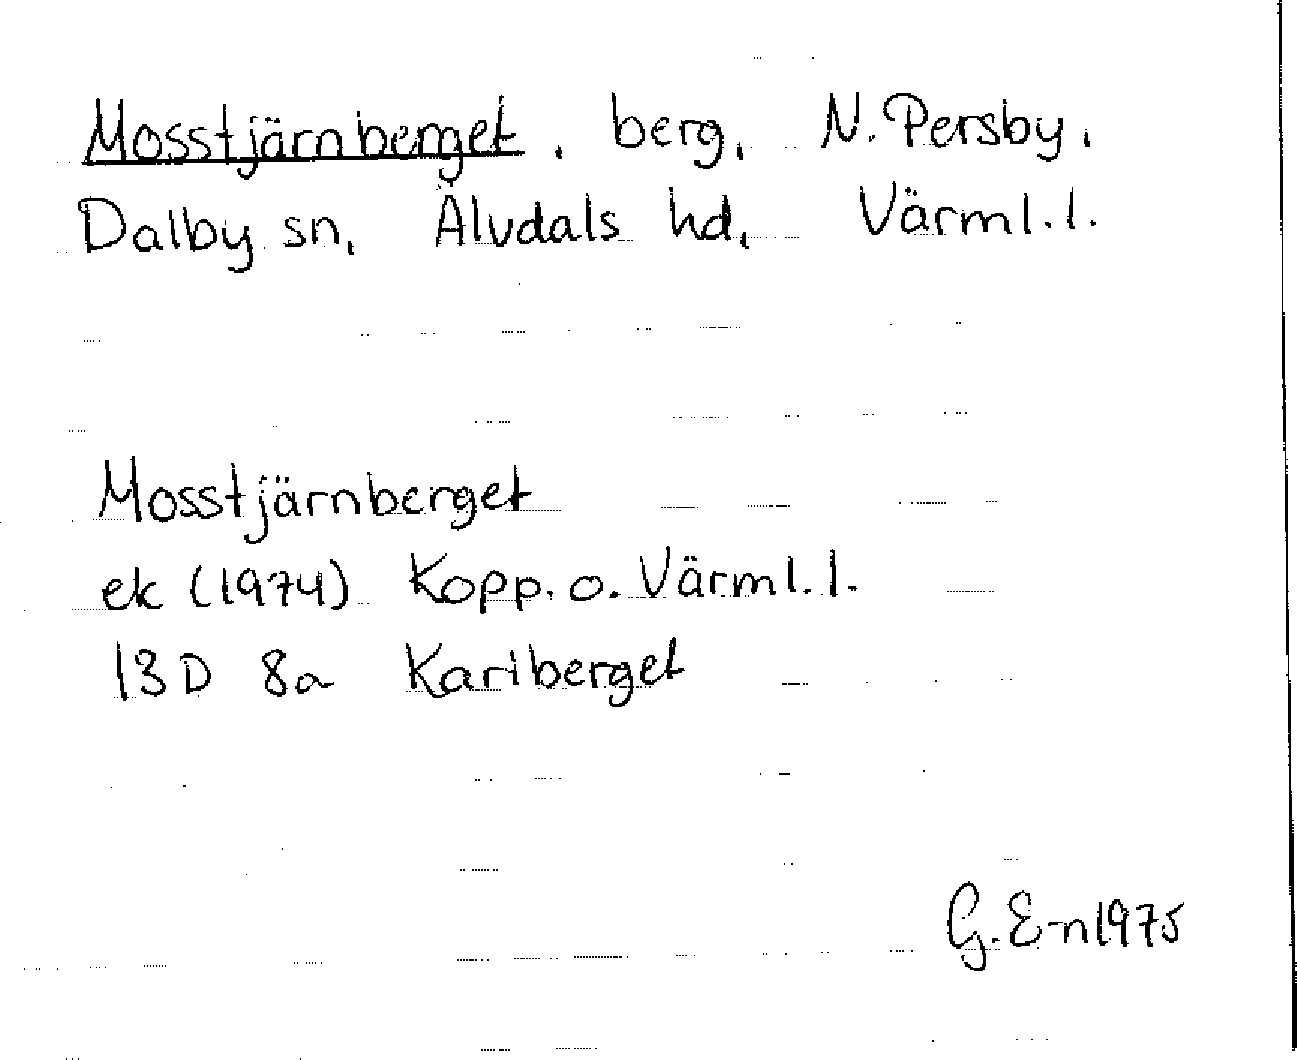 Mosstjärnberget, berg, N. Persby,
Dalby sn, Älvdals hd, Värml. l.
Mosstjärnberget
ek (1974) Kopp. o. Värml. l.
13D 8a Kariberget
G. E-n 1975